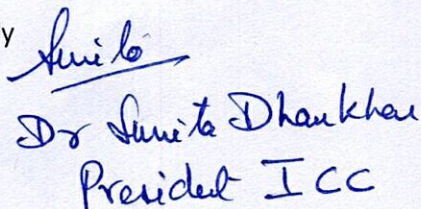 y
Sunita
Dr Sunita Dhankhar
President ICC